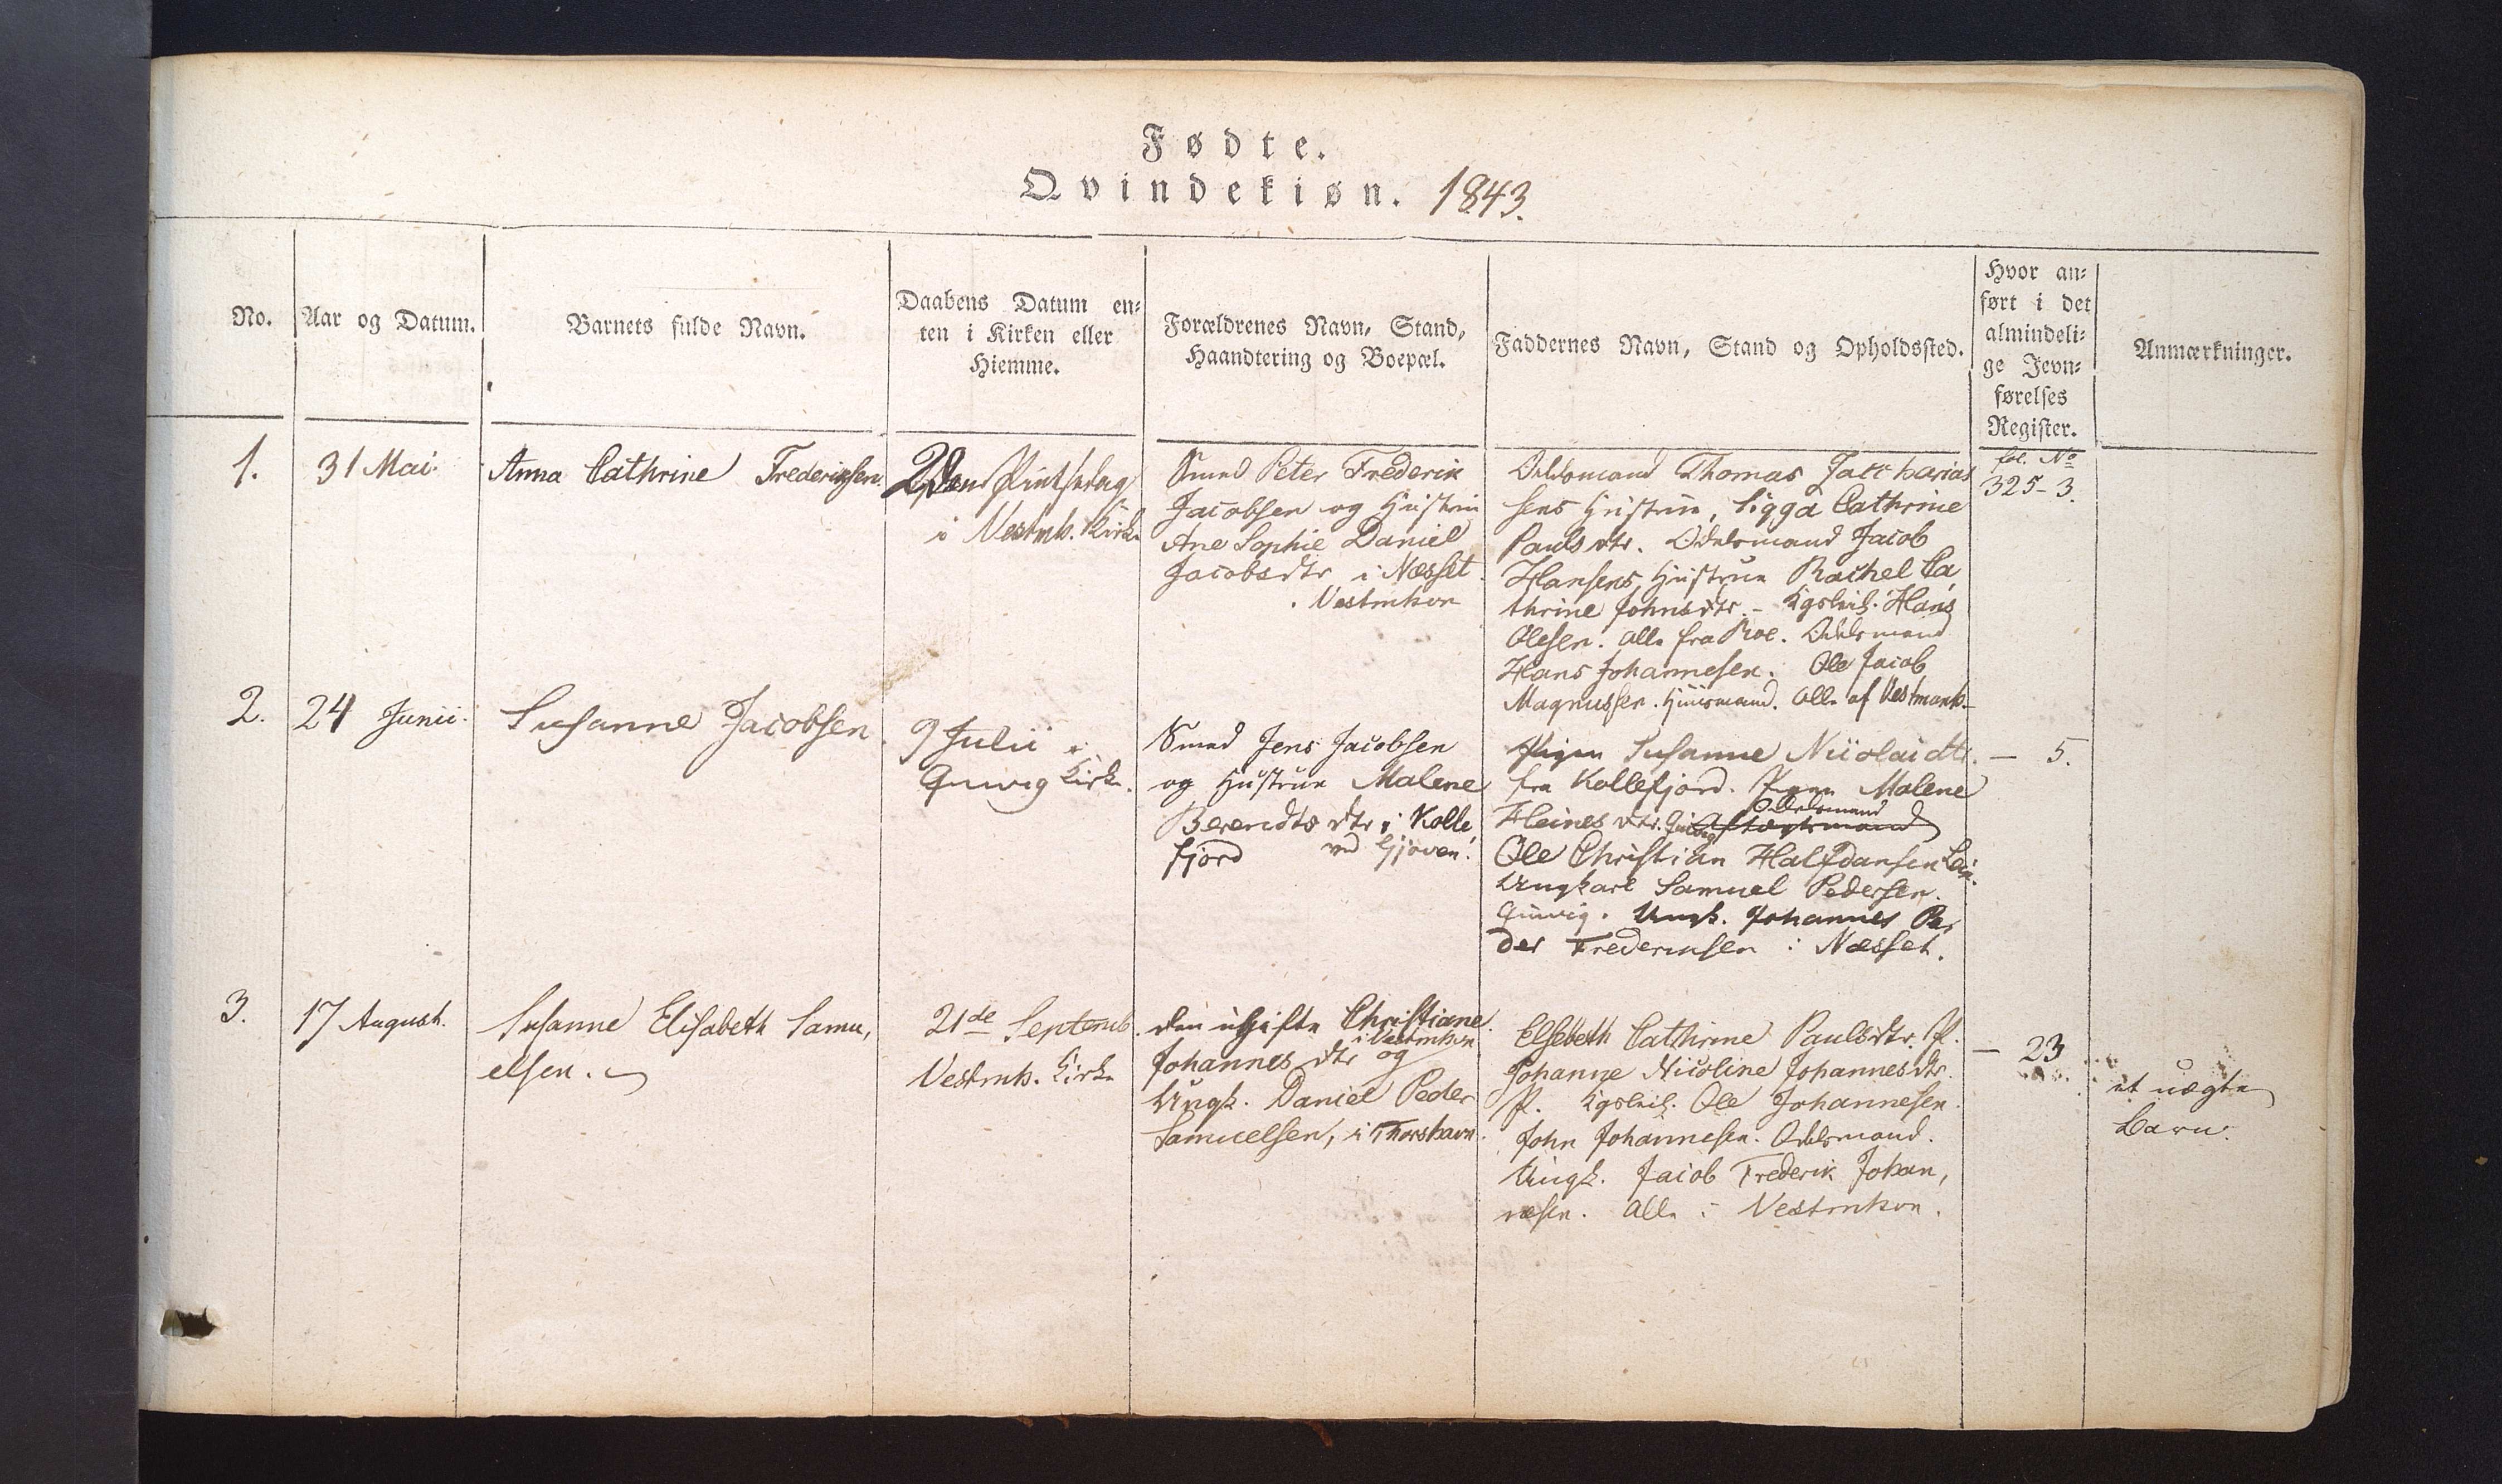 Fødte.
Qvindekiøn. 1843.
No.
Aar og Datum.
Barnets fulde Navn.
Daabens Datum en-
ten i Kirken eller
Hiemme.
Forældrenes Navn, Stand,
Haandtering og Boepæl.
Faddernes Navn, Stand og Opholdssted.
Hvor an-
ført i det
almindeli-
ge Jevn-
førelses
Register.
Anmærkninger.
1.
31 Mai.
Anna Cathrine Frederiksen.
2den Pintsedag
i Vestmh. Kirke
Smed Peter Frederik
Jacobsen og Hustrue
Ane Sophie Daniel
Jacobsdtr i Næsset
Vestmhvn
Odelsmand Thomas Zaccharias
sens Hustrue, Sigga Cathrine
Paulsdtr. Odelsmand Jacob
Hansens Hustrue Rachel Ca,
thrine Johnsdtr. - Kgsleil. Hans
Olesen. alle fra Qvic. Odelsmand
Hans Johannesen. Ole Jacob
Magnussen. Huusmand. alle af Vestmanh.
fol. No
325 - 3.
2.
24 Junii.
Susanne Jacobsen
9 Julii i
Qvivig Kirke.
Smed Jens Jacobsen
og Hustrue Malene
Berendts dtr i Kolle,
fjord ved Gjoven.
Pigen Susanne Nicolaidtr.
fra Kollefjord. Pigen Malene
Odelsmand
Heines dtr. Qvivig
Ole Christian Halfdansen Lei.
Ungkarl Samuel Pedersen.
Qvivig. Ungk. Johannes Pe,
der Frederiksen i Næsset.
- 5.
3.
17 August.
Susanne Elisabeth Samu,
elsen.
21de Septemb.
Vestmh. Kirke
den ugifte Christiane
i Vestmhvn
Johannes dtr og
Ungk. Daniel Peder
Samuelsen, i Thorshavn.
Elsebeth Cathrine Paulsdtr. P.
Johanne Nicoline Johannesdtr.
P. Kgsleil. Ole Johannesen.
John Johannesen. Odelsmand.
Ungk. Jacob Frederik Johan,
nesen. alle i Vestmhvn.
- 23
et uægte
Barn.